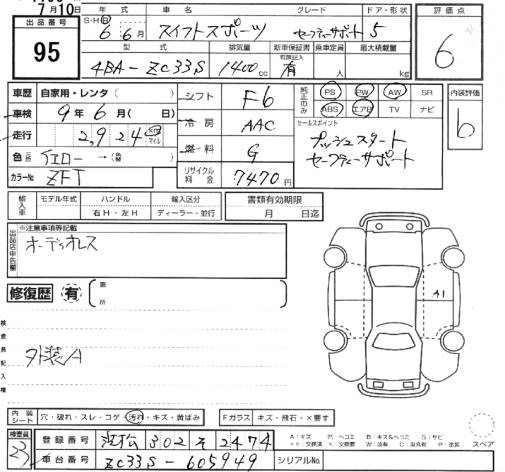 7月10日
出品番号
95
年式 車名 グレード ドア・形状
S・H・R 6 6月 スイフトスポーツ セーフティサポート 5
型式 排気量 新車保証書 乗車定員 最大積載量
有限記入
4BA-ZC33S 1400cc 有 人 kg
評価点
6
車歴 自家用・レンタ ( )
車検 9年 6月 ( 日)
走行 2,924 Km マイル
色 イエロー →(色替)
カラーNo ZFT
シフト F6
冷房 AAC
燃料 G
リサイクル料金 7470円
純正のみ
PS PW AW SR
ABS エアB TV ナビ
セールスポイント
プッシュスタート
セーフティーサポート
内装評価
b
輸入車
モデル年式 ハンドル 輸入区分
右H・左H ディーラー・並行
書類有効期限
月 日迄
出品店申告欄
※注意事項等記載
オーディオレス
修復歴 有
箇所
検査員記入欄
外装A
A1
内装シート 穴・破れ・スレ・コゲ・汚れ・キズ・黄ばみ
Fガラス キズ・飛石・×要す
検査員
23
登録番号 浜松 302 そ 2474
車台番号 ZC33S-605949
シリアルNo
スペア